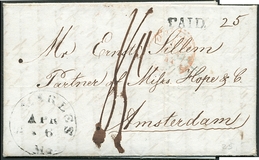 PAID 25
Mr Ernst Sillem
Partner of Messrs Hope & C.
Amsterdam
APR
6